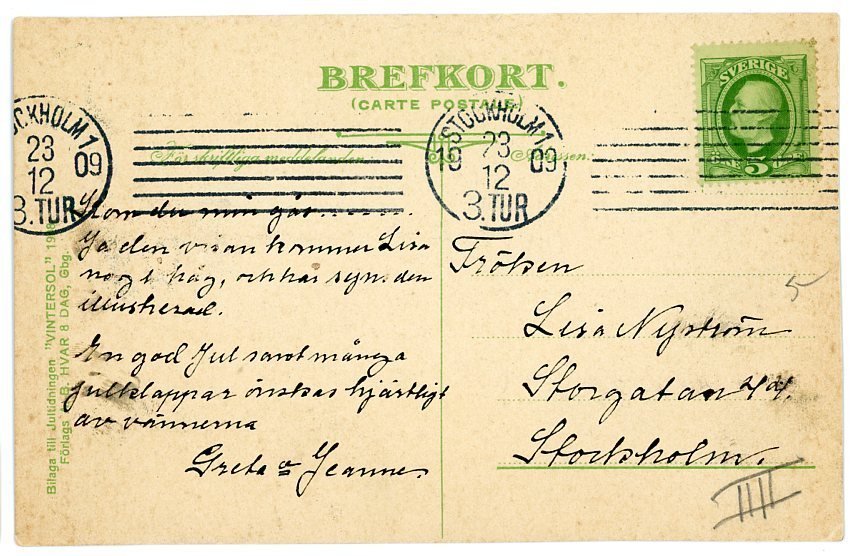 BREFKORT.
(CARTE POSTALE)
SVERIGE
5
STOCKHOLM 1
23
12
09
3.TUR
STOCKHOLM 1
19 23 09
12
3.TUR
För skriftliga meddelanden.
Adressen.
Kom du min gås........
Ja den visan kommer Lisa
nog i håg, och här syns den
illustrerad.
En god Jul samt många
julklappar önskas hjärtligt
av vännerna
Greta o Jeanne.
Fröken
Lisa Nyström
Storgatan 44.
Stockholm.
5
IIII
Bilaga till Jultidningen "VINTERSOL" 1908
Förlags A.B. HVAR 8 DAG, Gbg.